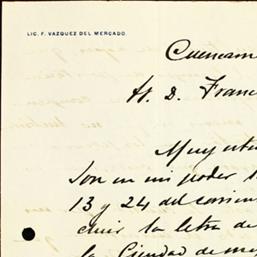 LIC. F. VAZQUEZ DEL MERCADO.
Cuencam
H. D. Franc
Muy
son en mi poder
13 y 24 del corrien
cluir la letra de
la Ciudad de